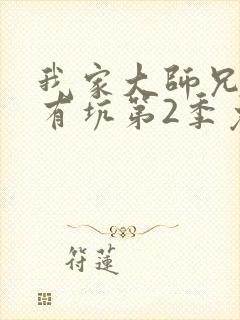 我家大師兄
有坑第2季
符蓮